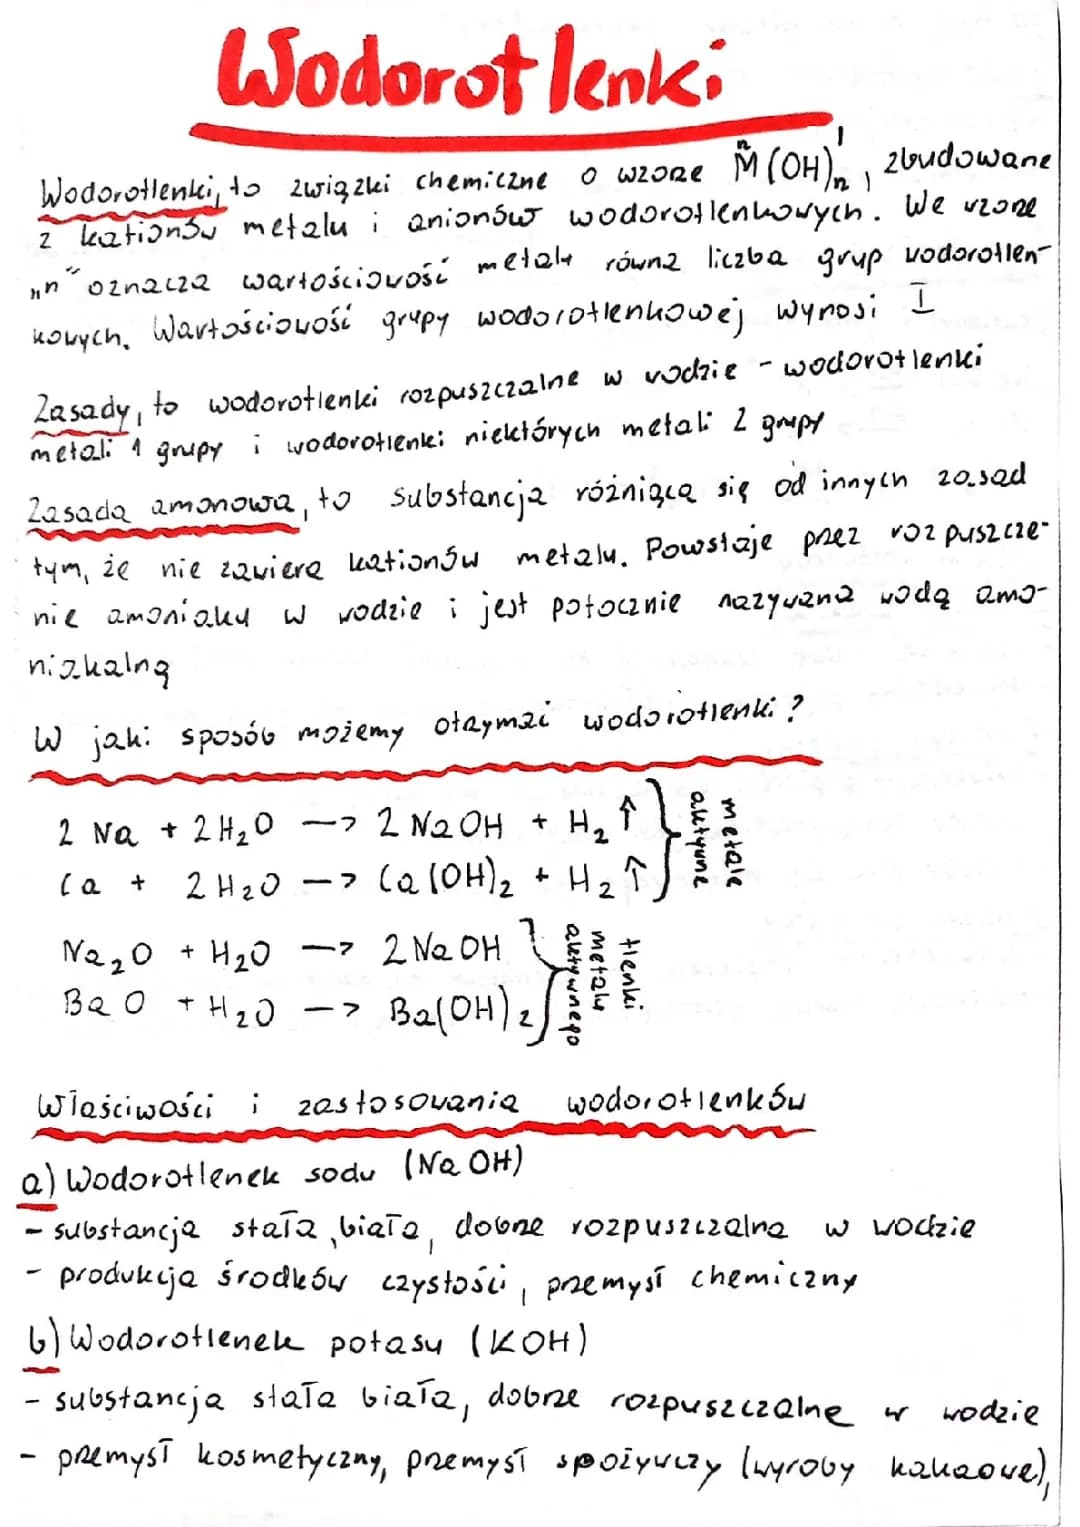 Wodorotlenki
Wodorotlenki, to związki chemiczne o wzorze M(OH)n, zbudowane
z kationów metalu i anionów wodorotlenkowych. We wzorze
„n" oznacza wartościowość metalu równa liczba grup wodorotlen-
kowych. Wartościowość grupy wodorotlenkowej wynosi I
Zasady, to wodorotlenki rozpuszczalne w wodzie - wodorotlenki
metali 1 grupy i wodorotlenki niektórych metali 2 grupy
Zasada amonowa, to substancja różniąca się od innych zasad
tym, że nie zawiera kationów metalu. Powstaje przez rozpuszcze-
nie amoniaku w wodzie i jest potocznie nazywana wodą amo-
niakalną
W jaki sposób możemy otrzymać wodorotlenki?
2 Na + 2 H₂O —> 2 NaOH + H₂ ↑
Ca + 2 H₂O —> Ca(OH)₂ + H₂ ↑
metale
aktywne
Na₂O + H₂O —> 2 NaOH
BaO + H₂O —> Ba(OH)₂
tlenki
metalu
aktywnego
Właściwości i zastosowania wodorotlenków
a) Wodorotlenek sodu (NaOH)
- substancja stała, biała, dobrze rozpuszczalna w wodzie
- produkcja środków czystości, przemysł chemiczny
b) Wodorotlenek potasu (KOH)
- substancja stała biała, dobrze rozpuszczalne w wodzie
- przemysł kosmetyczny, przemysł spożywczy (wyroby kakaowe),